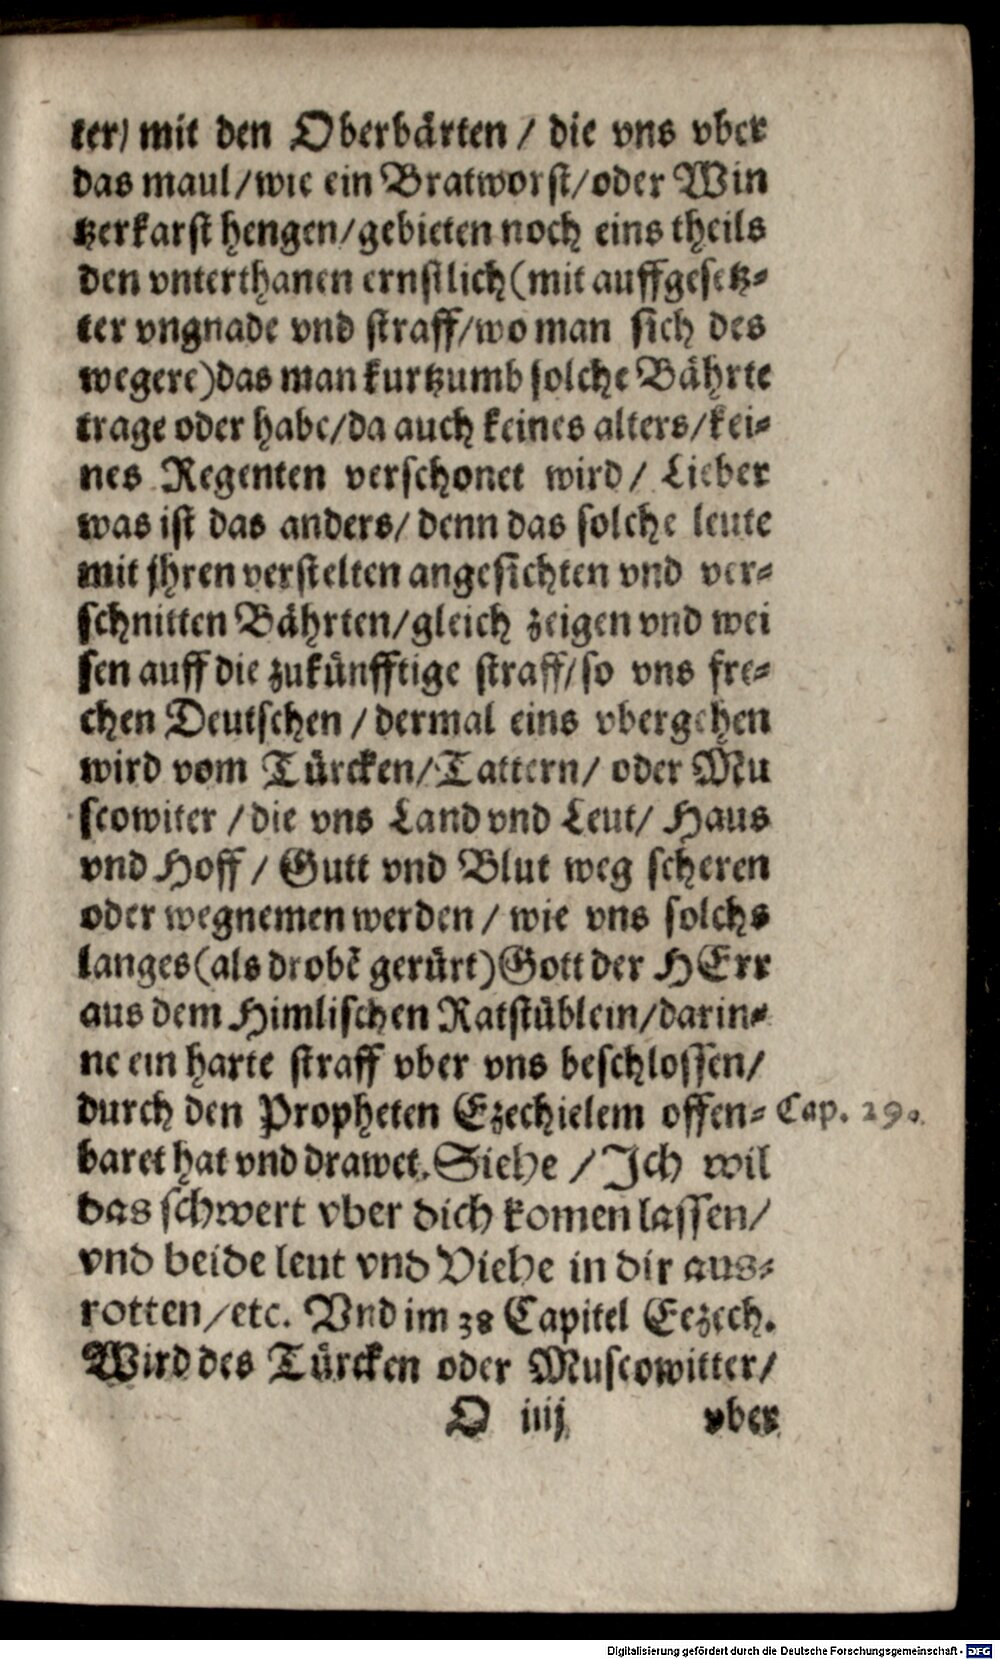 ter) mit den Oberbärten / die vns vber
das maul/wie ein Bratworst/oder Win
tzerkarst hengen/gebieten noch eins theils
den vnterthanen ernstlich(mit auffgesetz-
ter vngnade vnd straff/wo man sich des
wegere)das man kurtzumb solche Bährte
trage oder habe/da auch keines alters/kei-
nes Regenten verschonet wird / Lieber
was ist das anders/ denn das solche leute
mit jhren verstelten angesichten vnd ver-
schnitten Bährten/gleich zeigen vnd wei
sen auff die zukünfftige straff/so vns fre-
chen Deutschen / dermal eins vbergehen
wird vom Türcken/Tattern/ oder Mu
scowiter /die vns Land vnd Leut/ Haus
vnd Hoff / Gutt vnd Blut weg scheren
oder wegnemen werden / wie vns solchs
langes(als drobē gerürt)Gott der HErr
aus dem Himlischen Ratstüblein/darin-
ne ein harte straff vber vns beschlossen/
durch den Propheten Ezechielem offen- Cap. 29.
baret hat vnd drawet. Siehe / Ich wil
das schwert vber dich komen lassen/
vnd beide leut vnd Viehe in dir aus-
rotten/etc. Vnd im 38 Capitel Eczech.
Wird des Türcken oder Muscowitter/
O iiij vber
Digitalisierung gefördert durch die Deutsche Forschungsgemeinschaft - DFG